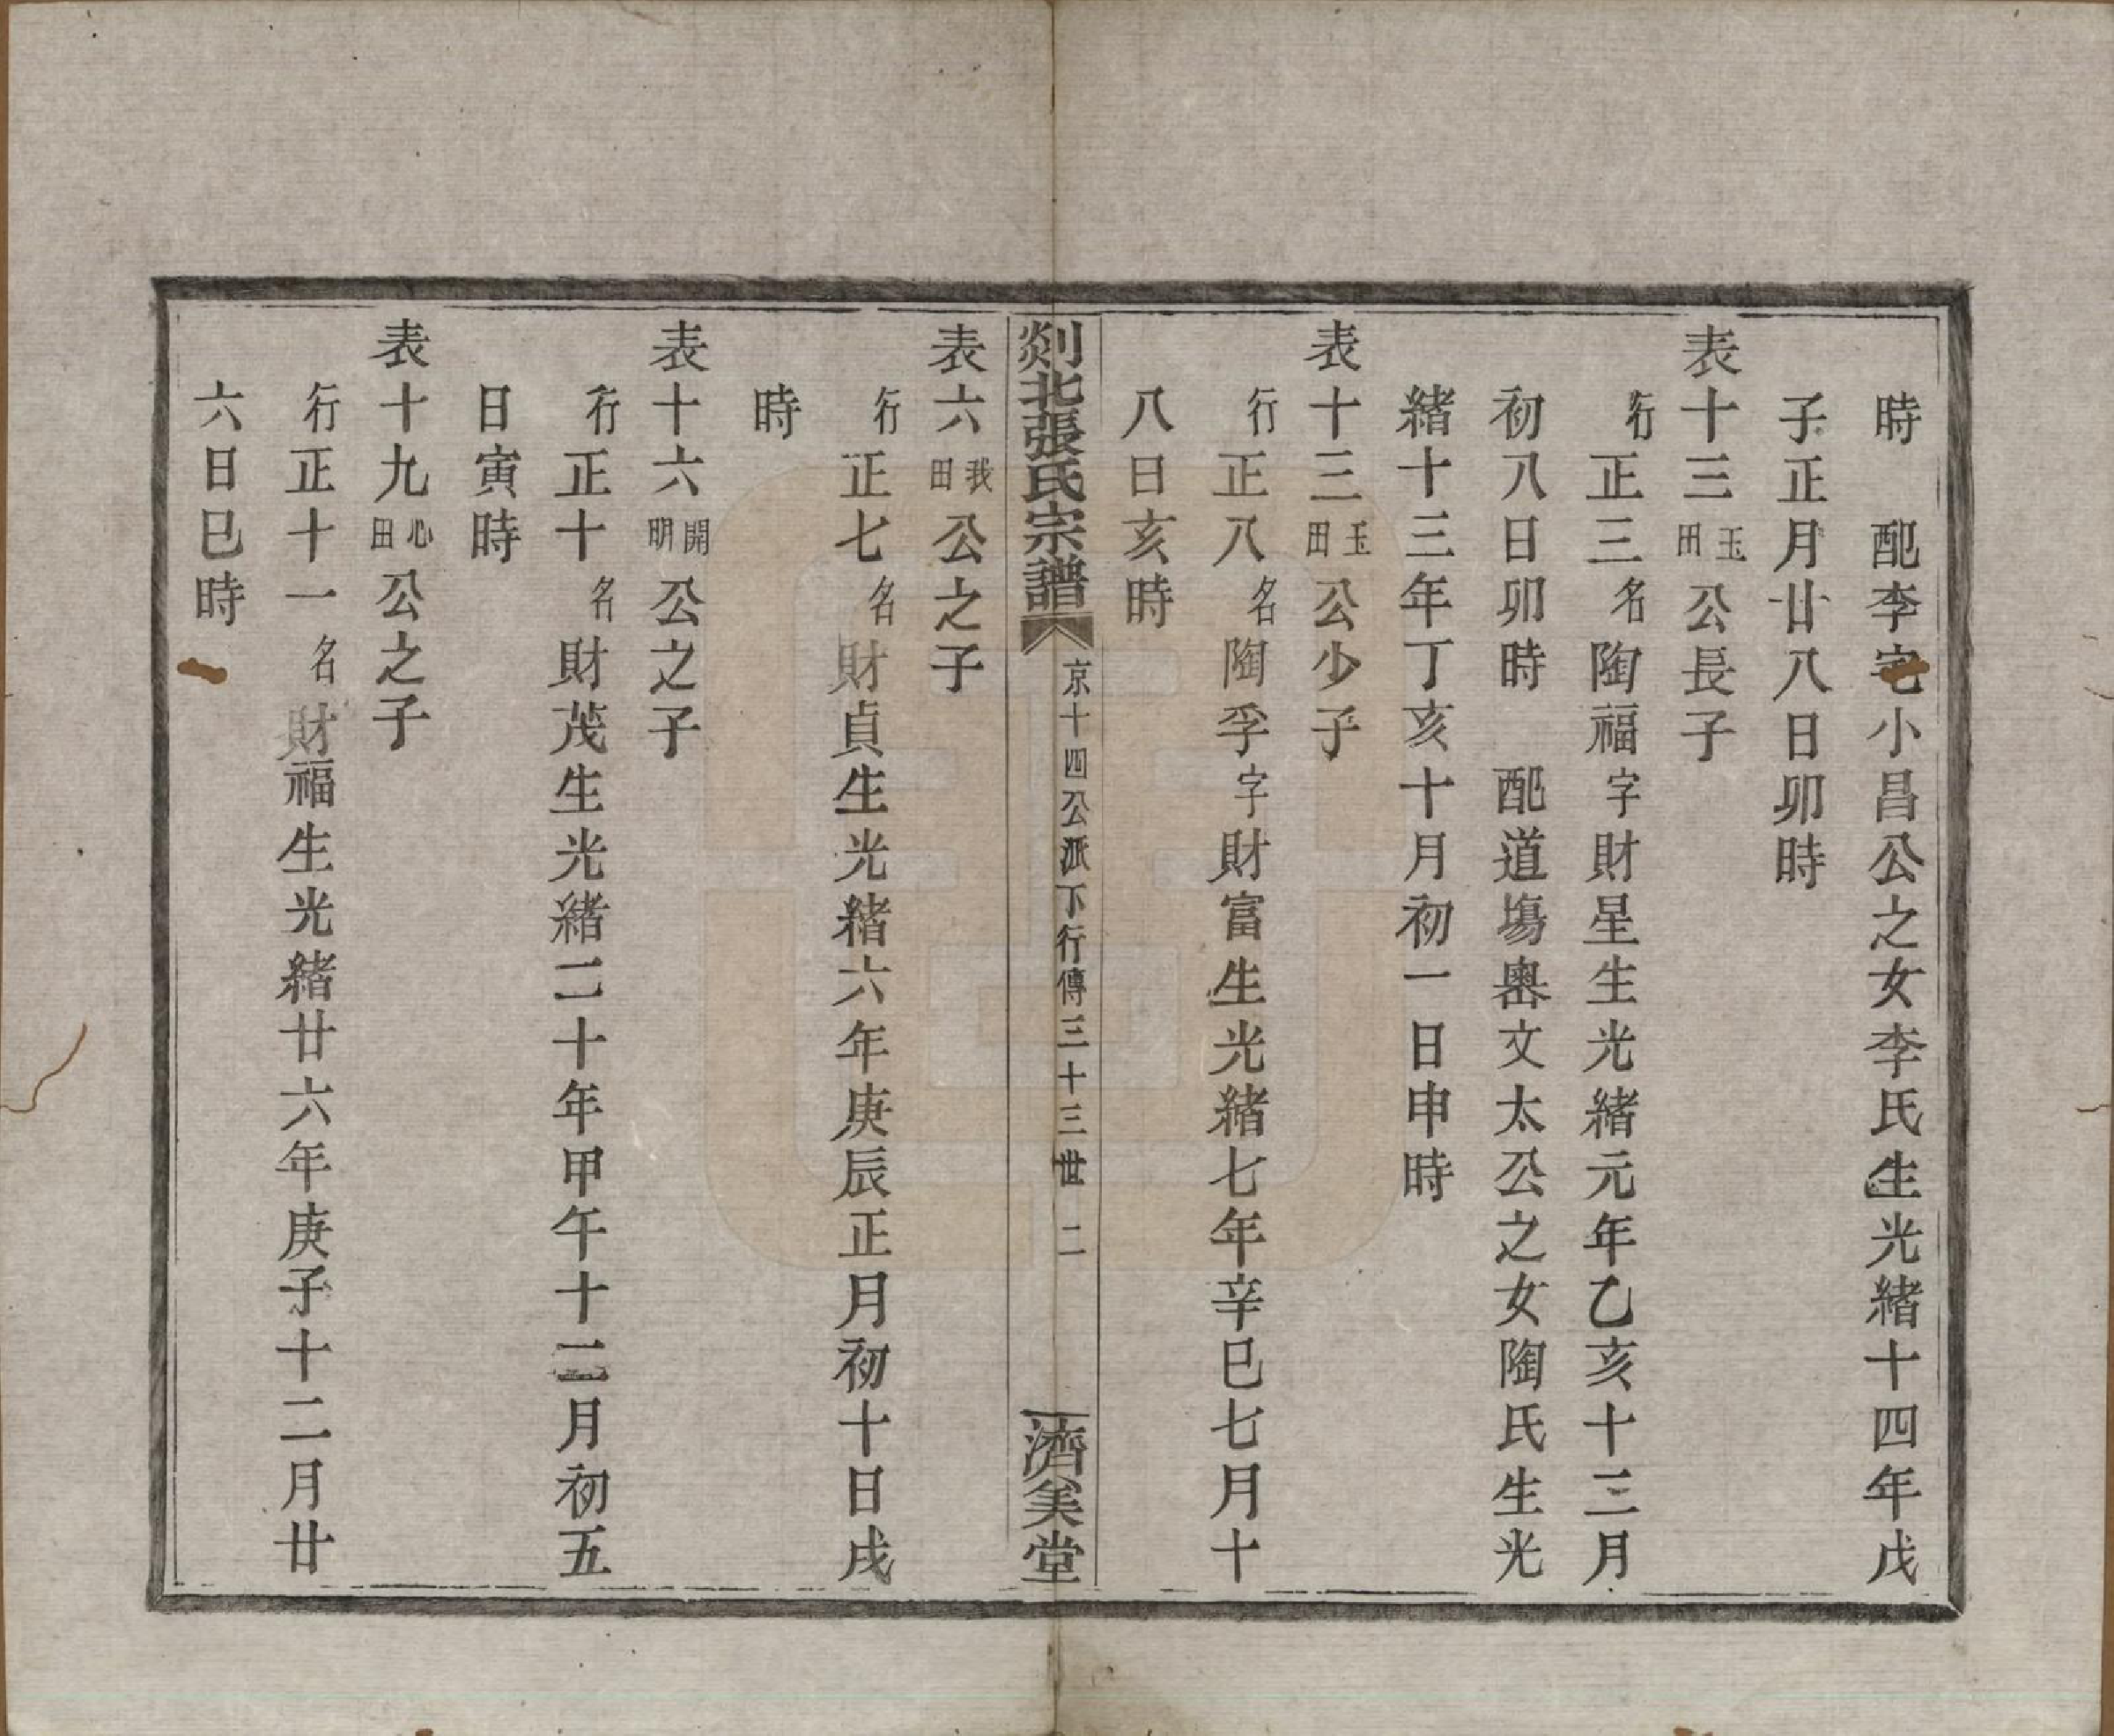 時　配李宅小昌公之女李氏生光緒十四年戊
子正月廿八日卯時
表十三玉田公長子
行正三名陶福字財星生光緒元年乙亥十二月
初八日卯時　配道塲嶴文太公之女陶氏生光
緒十三年丁亥十月初一日申時
表十三玉田公少子
行正八名陶孚字財富生光緒七年辛巳七月十
八日亥時
剡北張氏宗譜
京十四公派下行傳三十三世　二
濟美堂
表六我田公之子
行正七名財貞生光緒六年庚辰正月初十日戌
時
表十六開明公之子
行正十名財茂生光緒二十年甲午十二月初五
日寅時
表十九心田公之子
行正十一名財福生光緒廿六年庚子十二月廿
六日巳時